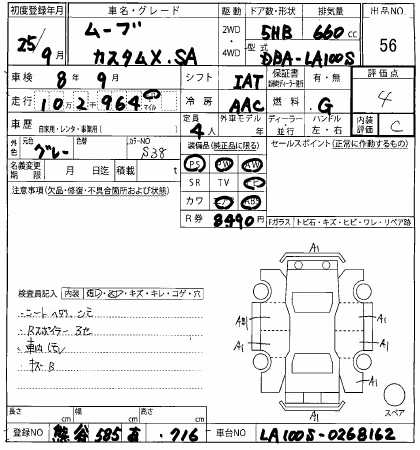 初度登録年月 車名・グレード 駆動 ドア数・形状 排気量 出品NO
25年 9月 ムーブ カスタムX.SA 2WD・4WD 5HB 660cc 56
型式 DBA-LA100S
車検 8年 9月 シフト IAT 保証書 有・無 評価点 4
走行 10万2千964 キロ マイル 冷房 AAC 燃料 G
車歴 自家用・レンタ・事業用( ) 定員 4人 外車モデル年 ディーラー・並行 ハンドル 左・右 内装評価 C
外色 元色 グレー 色替 カラーNO S38 装備品(純正品に限る) セールスポイント(正常に動作するもの)
名義変更期限 月 日迄 積載 t PS PW AW
注意事項(欠品・修復・不具合箇所および状態) SR TV
カワ ABS
R券 8490円 Fガラス トビ石・キズ・ヒビ・ワレ・リペア跡
検査員記入 内装 キズ・キレ・コゲ・穴
シートヘタリ シミ
Rスポイラー
車内
キズ B
A1
A1
A1
A1
A1
A1
スペア
長さ cm 幅 cm 高さ cm
登録NO 熊谷 585 ・716 車台NO LA100S-0268162